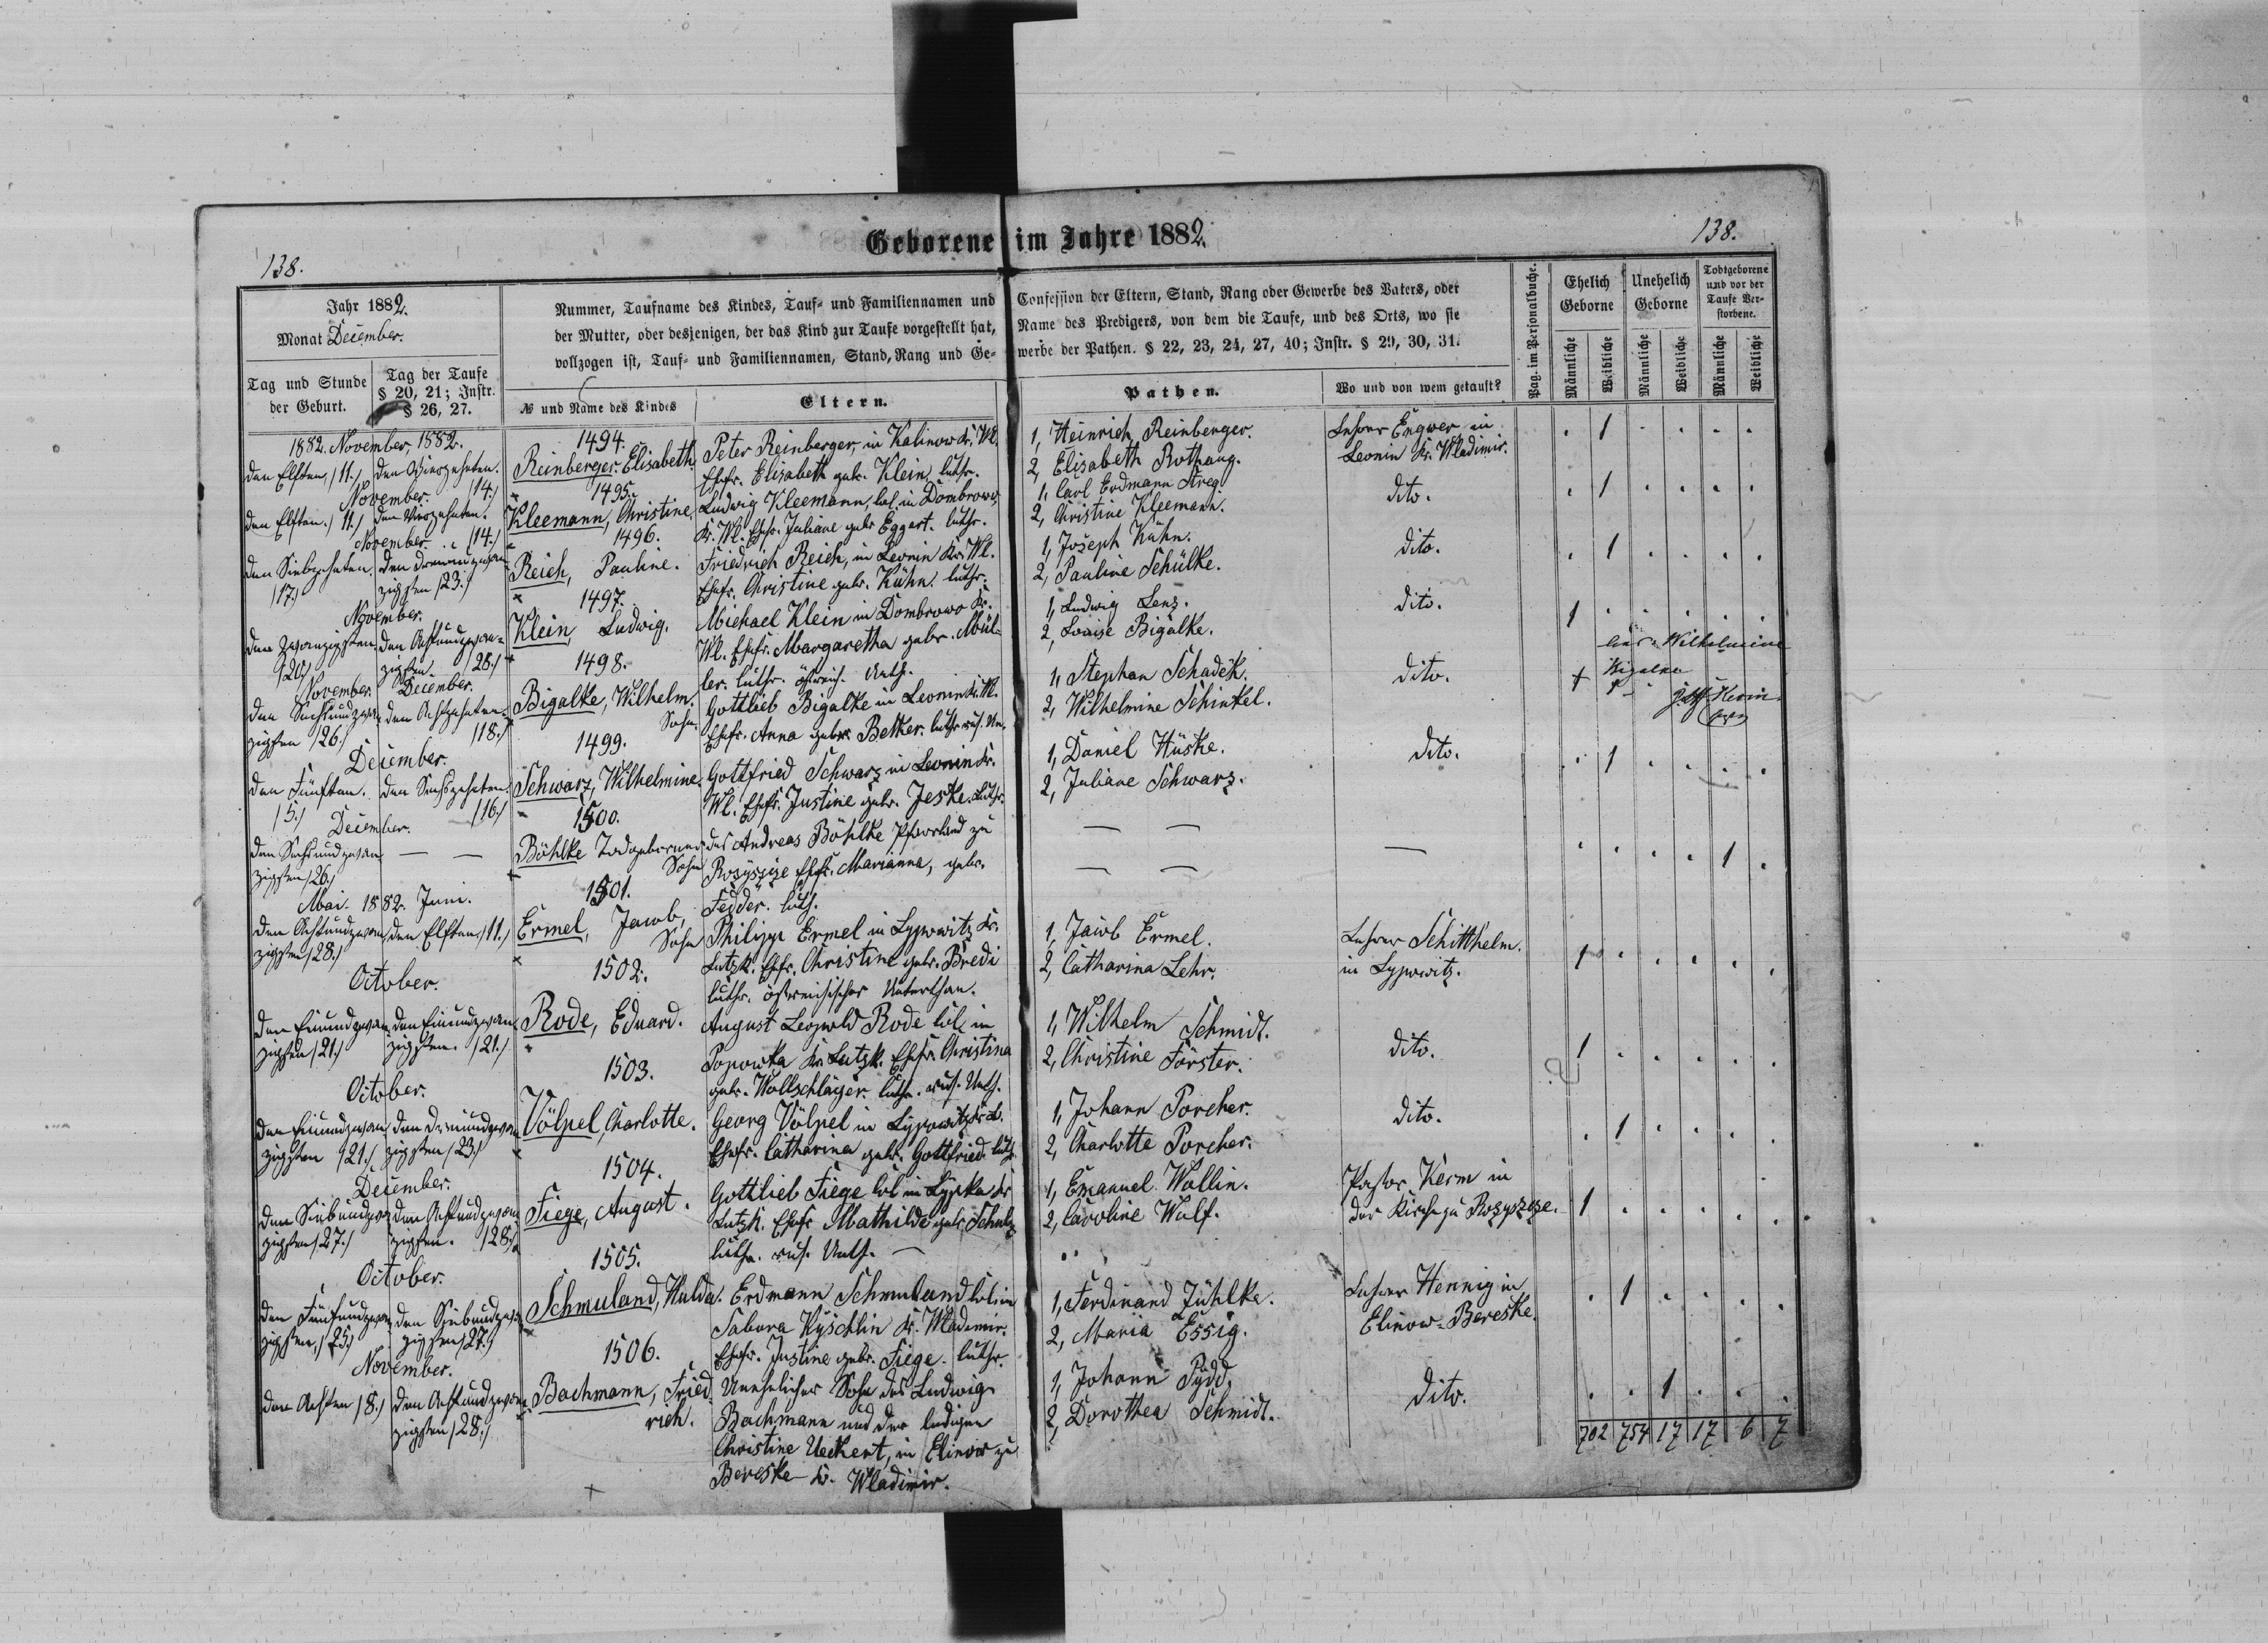 Geborene im Jahre 1882.
138.
138.
Jahr 1882.
Monat December.
Tag und Stunde der Geburt.
Tag der Taufe § 20, 21; Instr. § 26, 27.
Nummer, Taufname des Kindes, Tauf= und Familiennamen und
der Mutter, oder desjenigen, der das Kind zur Taufe vorgestellt hat,
vollzogen ist, Tauf= und Familiennamen, Stand, Rang und Ge=
Confession der Eltern, Stand, Rang oder Gewerbe des Vaters, oder
Name des Predigers, von dem die Taufe, und des Orts, wo sie
werbe der Pathen. § 22, 23, 24, 27, 40; Instr. § 29, 30, 31.
№ und Name des Kindes
Eltern.
Pathen.
Wo und von wem getauft?
Pag. im Personalbuche.
Ehelich Geborne
Unehelich Geborne
Todtgeborene und vor der Taufe Verstorbene.
Männliche
Weibliche
Männliche
Weibliche
Männliche
Weibliche
1882. November, 1882.
den Elften /11./
den Vierzehnten. /14./
1494.
Reinberger Elisabeth
Peter Reinberger, in Kalinow Kr. Wl.
Ehefr. Elisabeth geb. Klein, luthr.
1, Heinrich Reinberger.
2, Elisabeth Rothaug.
Lehrer Engwer in
Leonin Kr. Wladimir.
1
November.
den Elften. /11./
den Vierzehnten. /14./
1495.
Kleemann, Christine,
Ludwig Kleemann, col. in Dombrowo,
Kr. Wl. Ehefr. Juliane geb. Eggert. luthr.
1, Carl Erdmann Streg
2, Christine Kleemann.
dito.
1
November.
den Siebzehnten. /17./
den Dreiundzwanzigsten /23./
1496.
Reich, Pauline.
Friedrich Reich, in Leonin Kr. Wl.
Ehefr. Christine geb. Kühn. luthr.
1, Joseph Kühn.
2, Pauline Schülke.
dito.
1
November.
den Zwanzigsten /20./
den Achtundzwanzigsten. /28./
1497.
Klein, Ludwig.
Michael Klein in Dombrowo Kr.
Wl. Ehefr. Margaretha geb. Mül-
ler. luthr. östreich. Unth.
1, Ludwig Lenz.
2, Louise Bigalke.
dito.
1
November. December.
den Sechsundzwanzigsten /26./
den Achtzehnten /18./
1498.
Bigalke, Wilhelm.
Sohn
Gottlieb Bigalke in Leonin Kr. Wl.
Ehefr. Anna geb. Betker. luthr. rus. Un.
1, Stephan Schadek.
2, Wilhelmine Schinkel.
dito.
Wilhelmine
Bigalke
December.
den Fünften. /5./
den Sechszehnten. /16./
1499.
Schwarz, Wilhelmine
Gottfried Schwarz in Leonin Kr.
Wl. Ehefr. Justine geb. Jeske. luthr.
1, Daniel Hüske.
2, Juliane Schwarz.
dito.
1
December.
den Sechsundzwanzigsten /26./
— —
1500.
Böhlke Todgeborener
Sohn
des Andreas Böhlke Pfarrland zu
Rozyszcze Ehefr. Marianna, geb.
Fedder. luth.
— —
— —
—
1
Mai. 1882. Juni.
den Achtundzwanzigsten /28./
den Elften /11./
1501.
Ermel, Jacob,
Sohn
Philipp Ermel in Lypowitz Kr.
Lutzk. Ehefr. Christine geb. Bredi
luthr. östreichischer Unterthan.
1, Jacob Ermel.
2, Catharina Lehr.
Lehrer Schitthelm.
in Lypowitz.
1
October.
den Einundzwanzigsten /21./
den Einundzwanzigsten. /21./
1502.
Rode, Eduard.
August Leopold Rode col. in
Popowka Kr. Lutzk. Ehefr. Christina
geb. Wollschläger. luthr. rus. Unth.
1, Wilhelm Schmidt.
2, Christine Förster.
dito.
1
October.
den Einundzwanzigsten /21./
den Dreiundzwanzigsten /23./
1503.
Völpel, Charlotte.
Georg Völpel in Lypowitz Kr. L.
Ehefr. Catharina geb. Gottfried. luth.
1, Johann Porcher.
2, Charlotte Porcher.
dito.
1
December.
den Siebundzwanzigsten /27./
den Achtundzwanzigsten. /28./
1504.
Fiege, August.
Gottlieb Fiege col. in Lypka Kr.
Lutzk. Ehefr. Mathilde geb. Schulz
luthr. rus. Unth. —
1, Emanuel Wollin.
2, Caroline Wulf.
Pastor Kerm in
der Kirche zu Rozyszcze.
1
October.
den Fünfundzwanzigsten, /25./
den Siebundzwanzigsten /27./
1505.
Schmuland, Hulda.
Erdmann Schmuland col. in
Sabora Kyschlin Kr. Wladimir.
Ehefr. Justine geb. Fiege. luthr.
1, Ferdinand Zühlke.
2, Maria Essig.
Lehrer Hennig in
Elinow-Bereske.
1
November.
den Achten /8./
den Achtundzwanzigsten /28./
1506.
Bachmann, Fried
rich.
Unehelicher Sohn des Ludwig
Bachmann und der ledigen
Christine Ueckert, in Elinow zu
Bereske Kr. Wladimir.
1, Johann Pydd.
2, Dorothea Schmidt.
dito.
1
702 754 17 17 6 7